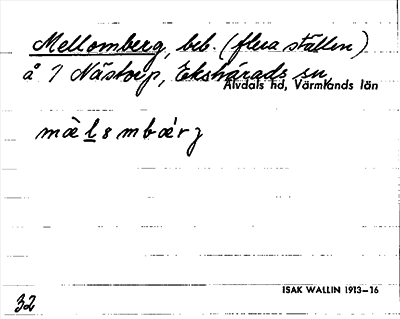 Mellomberg, beb. (flera ställen)
å 7 Nästorp, Ekshärads sn,
Älvdals hd, Värmlands län
màlsmbárg
ISAK WALLIN 1913–16
32